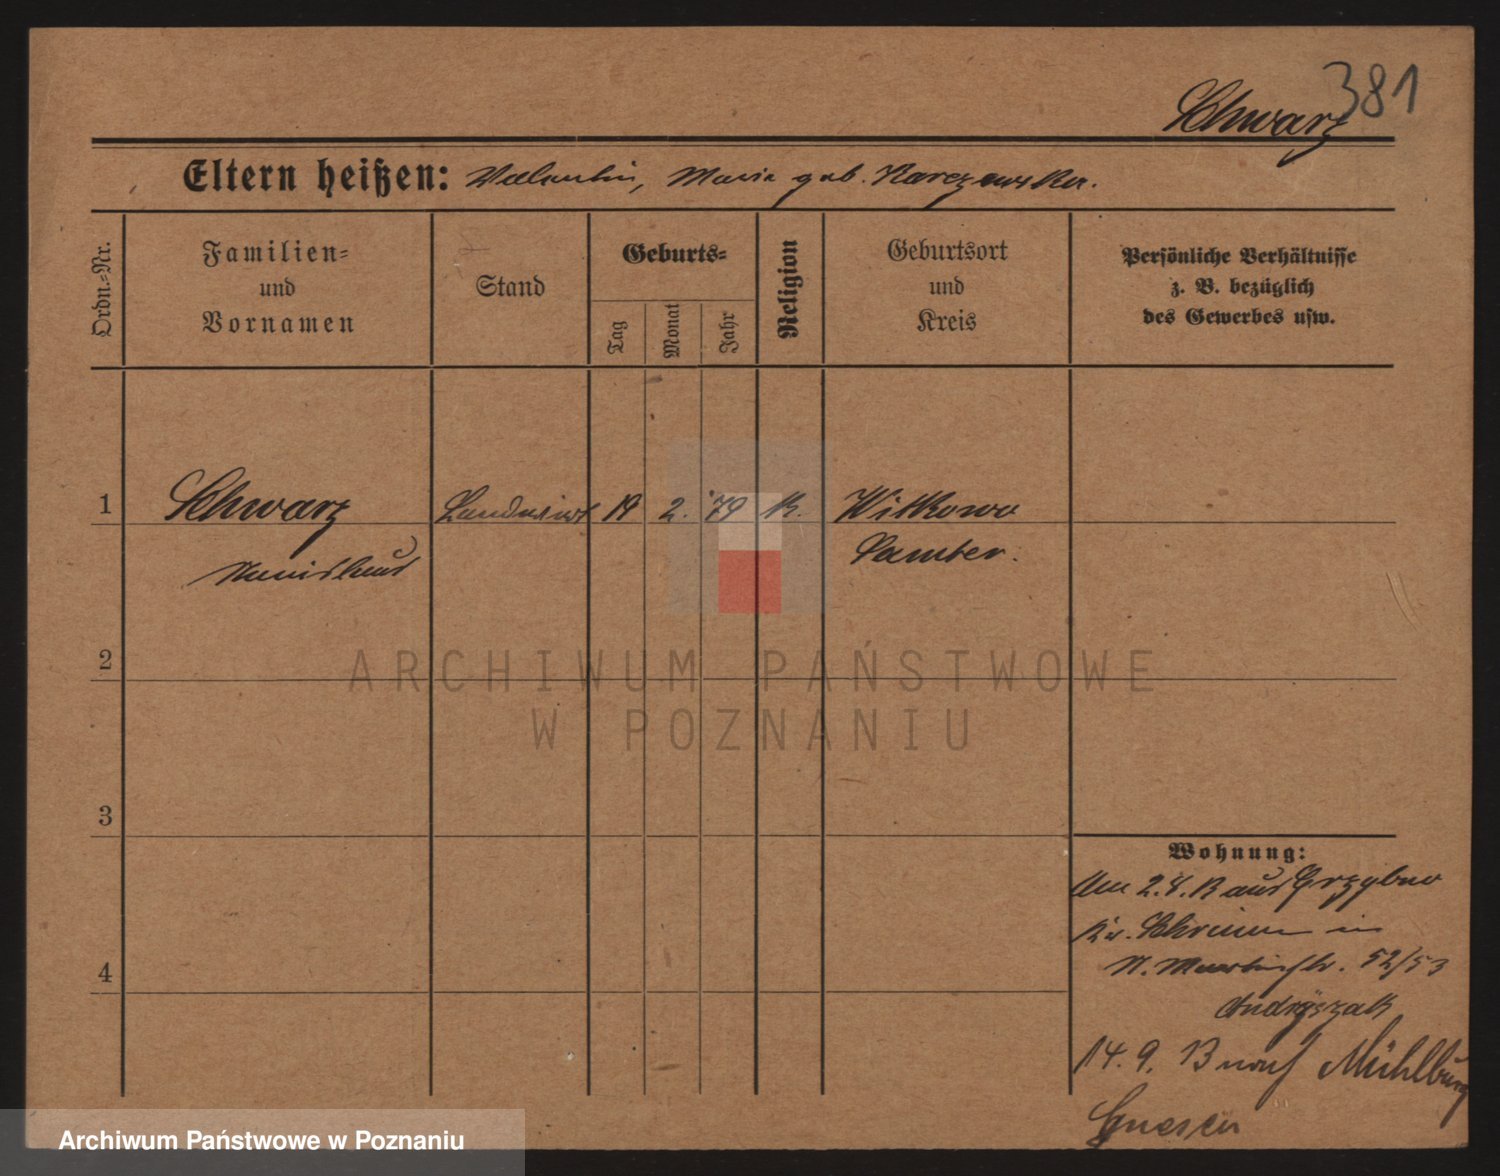 381
Schwarz
Eltern heißen: Valentin, Maria geb. Karczewska.
Ordn.-Nr.
Familien-
und
Vornamen
Stand
Geburts-
Tag
Monat
Jahr
Religion
Geburtsort
und
Kreis
Persönliche Verhältnisse
z. B. bezüglich
des Gewerbes usw.
1 Schwarz Landwirt 19 2. 79 K. Witkowo
Stanislaus Samter.
2
3
4
Wohnung:
Am 2.8.13 aus Grzybno
Kr. Schrimm in
St. Martinstr. 52/53
Andryszak
14. 9. 13 nach Mühlburg
Gnesen
ARCHIWUM PAŃSTWOWE
W POZNANIU
Archiwum Państwowe w Poznaniu